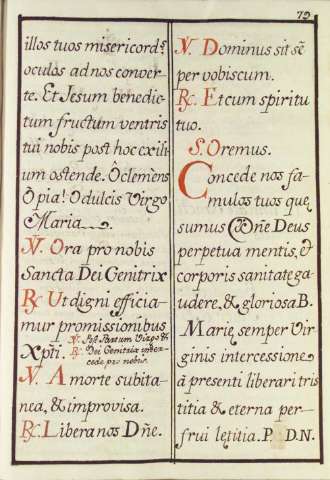 79
illos tuos misericordẽ
oculos ad nos conver-
te. Et Jesum benedic-
tum fructum ventris
tui nobis post hoc exili-
um ostende. Ô clemẽs
Ô pia! O dulcis Virgo
Maria.
℣. Ora pro nobis
Sancta Dei Genitrix
℟. Ut digni efficia-
mur promissionibus
Xpti. ℣. Post Partum Virgo &c
℟. Dei Genitrix inter-
cede pro nobis.
℣. A morte subita-
nea, & improvisa.
℟. Libera nos Dñe.
℣. Dominus sit sẽ
per vobiscum.
℟. Et cum spiritu
tuo.
S. Oremus.
Concede nos fa-
mulos tuos quę
sumus Dñe Deus
perpetua mentis, &
corporis sanitate ga-
udere, & gloriosa B.
Marię semper Vir
ginis intercessione
à presenti liberari tris
titia & eterna per-
frui lętitia. P. D. N.